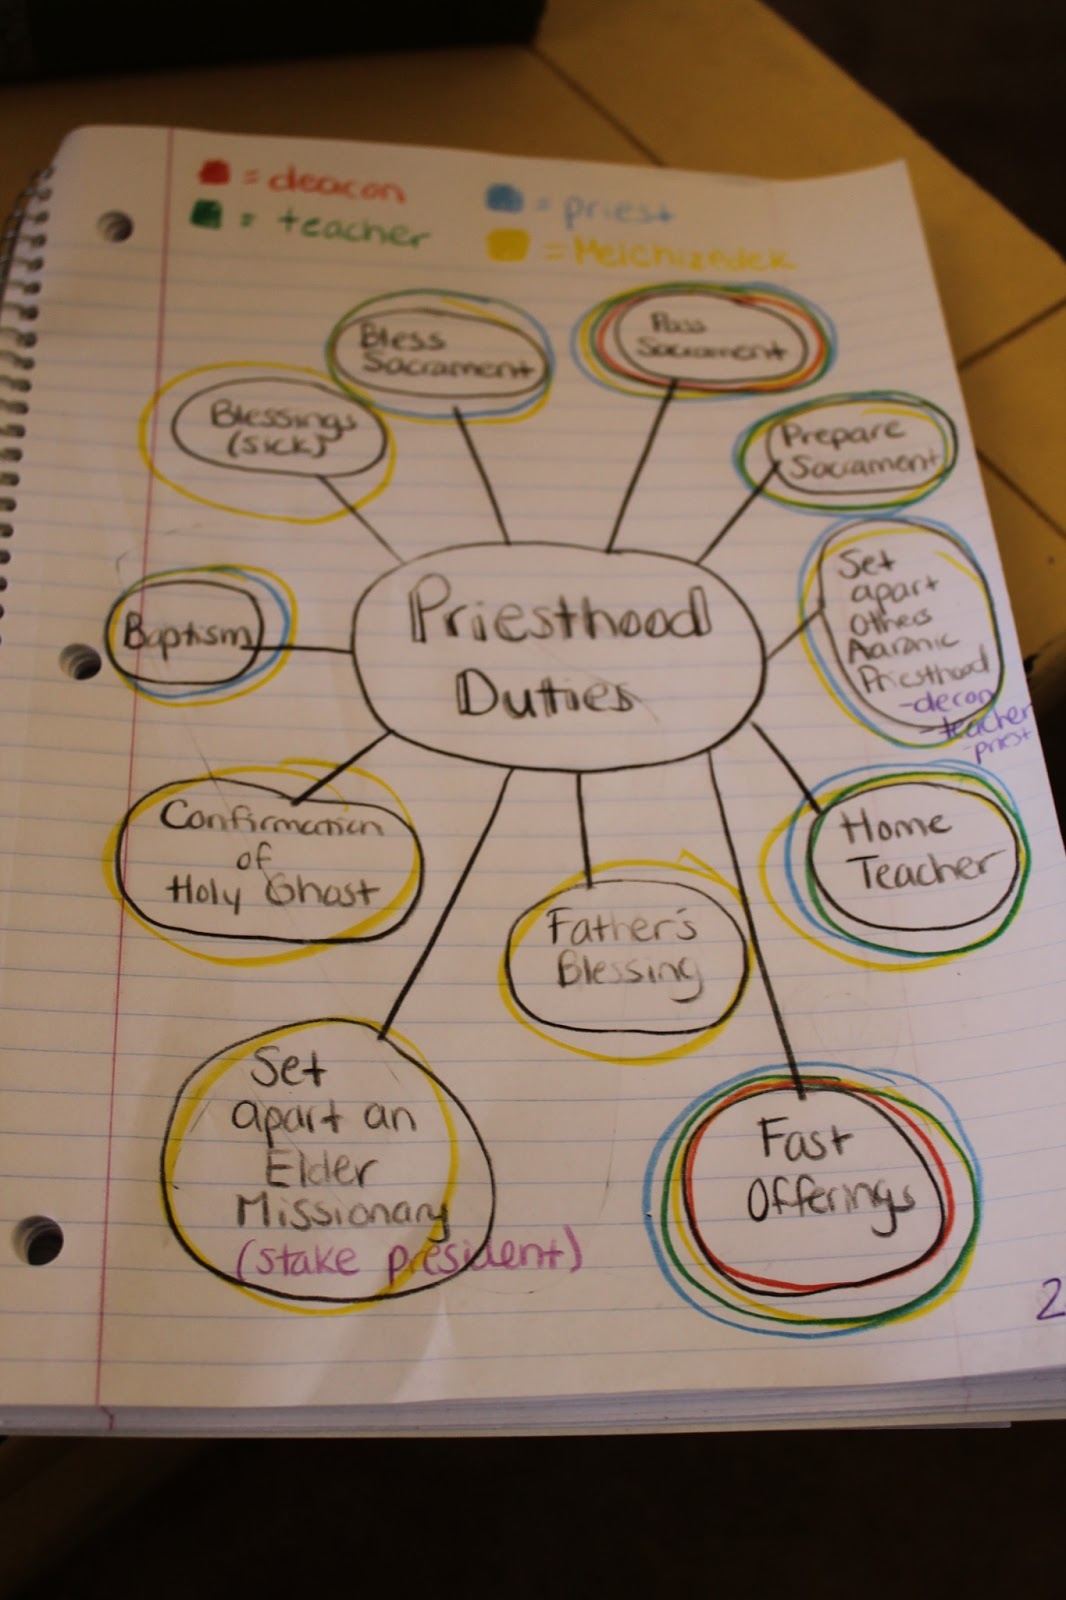 = deacon
= priest
= teacher
= Melchizedek
Bless
Sacrament
Pass
Sacrament
Blessings
(sick)
Prepare
Sacrament
Set
apart
Others
Aaronic
Priesthood
-decon
-teacher
-priest
Priesthood
Duties
Baptism
Confirmation
of
Holy Ghost
Home
Teacher
Father's
Blessing
Set
apart an
Elder
Missionary
(stake president)
Fast
Offerings
2